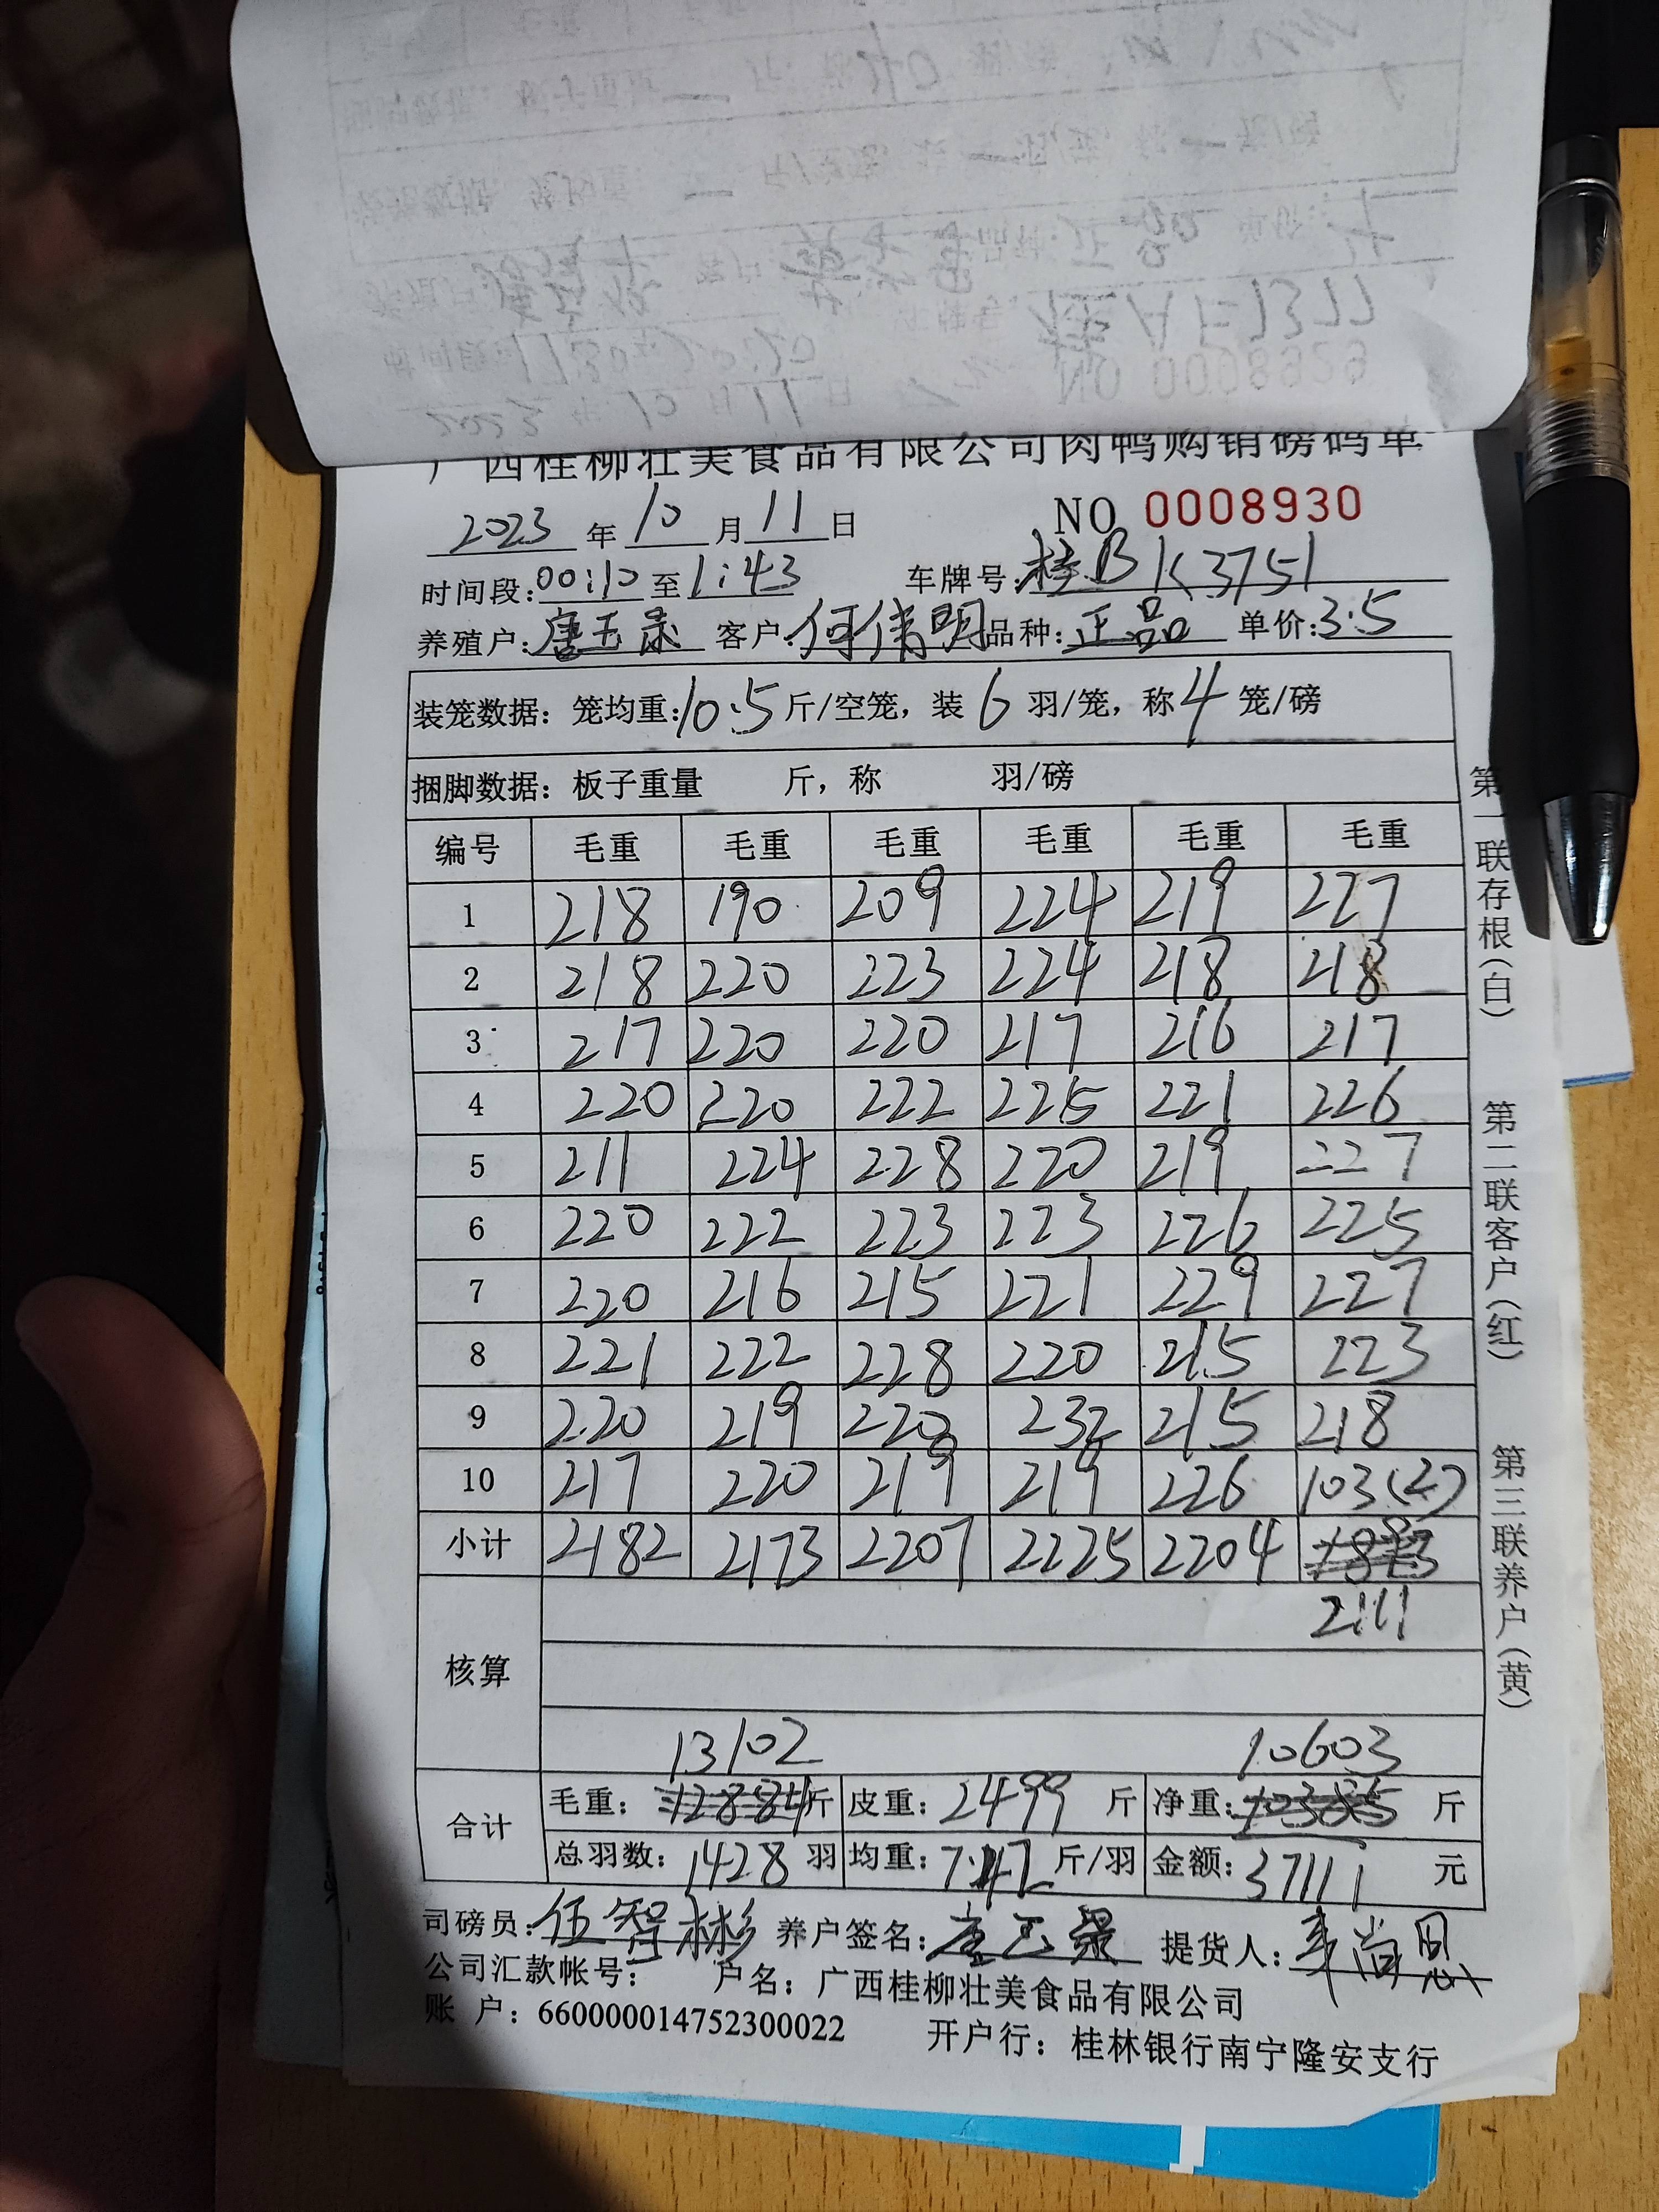 广西桂柳壮美食品有限公司肉鸭购销磅码单
2023 年 10 月 11 日 NO 0008930
时间段:00:10 至 1:43 车牌号:桂B K3751
养殖户:唐玉录 客户:何伟明 品种:正品 单价:3.5
装笼数据:笼均重:10.5 斤/空笼,装 6 羽/笼,称 4 笼/磅
捆脚数据:板子重量 斤,称 羽/磅
编号 毛重 毛重 毛重 毛重 毛重 毛重
1 218 190 209 224 219 227
2 218 220 223 224 218 218
3 217 220 220 217 216 217
4 220 220 222 225 221 226
5 211 224 228 220 219 227
6 220 222 223 223 226 225
7 220 216 215 221 229 227
8 221 222 228 220 215 223
9 220 219 220 232 215 218
10 217 220 219 219 226 103(2)
小计 2182 2173 2207 2225 2204
2111
核算
13102 10603
合计 毛重: 斤 皮重:2499 斤 净重: 斤
总羽数:1428 羽 均重:7.42 斤/羽 金额:37111 元
司磅员:伍智彬 养户签名:唐玉录 提货人:
公司汇款帐号: 户名:广西桂柳壮美食品有限公司
账 户:660000014752300022 开户行:桂林银行南宁隆安支行
第一联存根(白) 第二联客户(红) 第三联养户(黄)